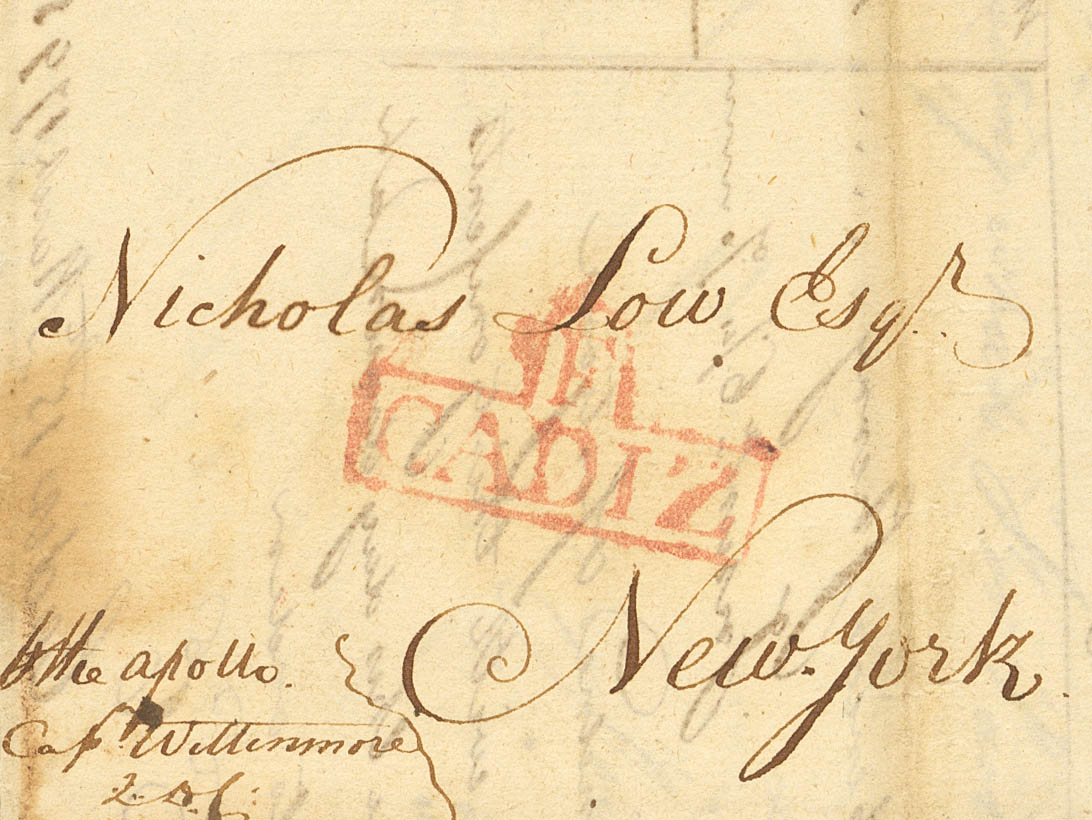 Nicholas Low Esqr.
CADIZ
New-York.
the apollo.
Capt. Wittinmore